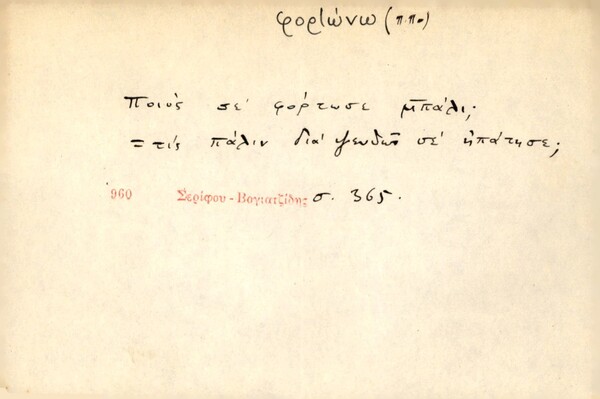 φορτώνω (π.π.)
Ποιός σέ φόρτωσε μπάλι;
= τίς πάλιν διά ψευδῶν σέ ἠπάτησε;
960 Σερίφου - Βογιατζίδης σ. 365.